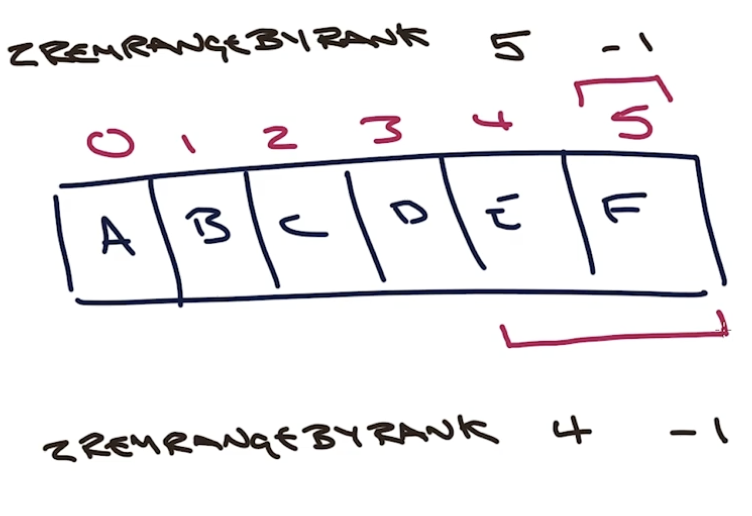 ZREMRANGEBYRANK 5 -1
0 1 2 3 4 5
A B C D E F
ZREMRANGEBYRANK 4 -1